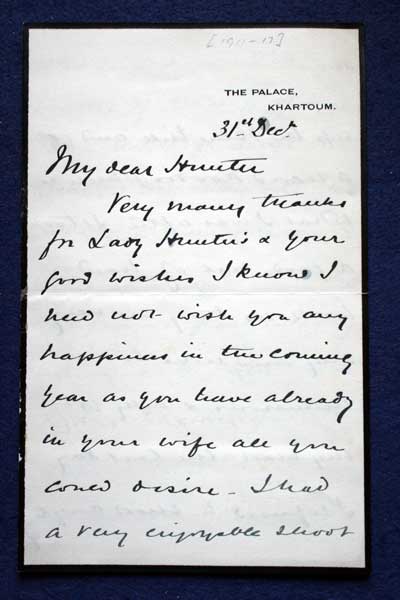 [1911-12]
THE PALACE,
KHARTOUM.
31st Decr.
My dear Hunter
Very many thanks
for Lady Hunter's & your
good wishes I know I
need not wish you any
happiness in the coming
year as you have already
in your wife all you
could desire - I had
a very enjoyable shoot